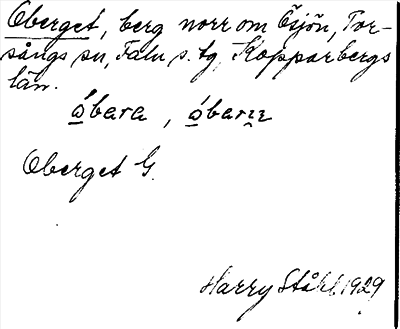 Oberget, berg norr om Ösjön, Tor-
sångs sn, Falu s. tg, Kopparbergs
län.
óbara, óbarɪɪ
Oberget G.
Harry Ståhl 1929